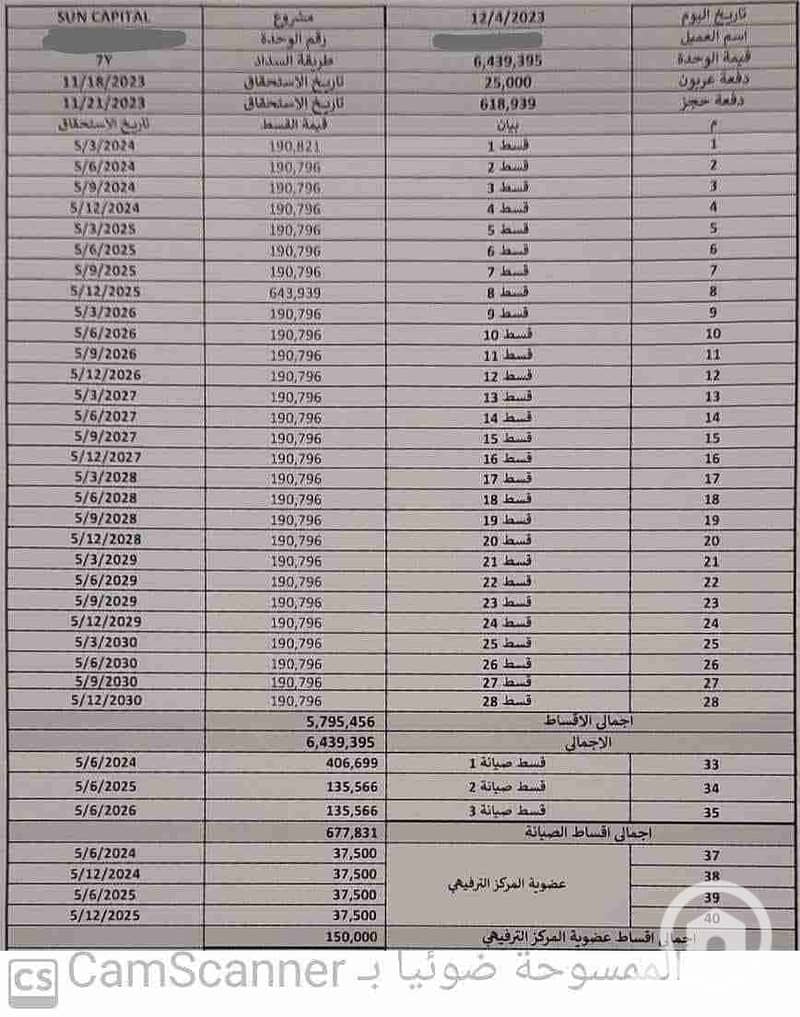 تاريخ اليوم 12/4/2023 مشروع SUN CAPITAL
اسم العميل رقم الوحدة
قيمة الوحدة 6,439,395 طريقة السداد 7Y
دفعة عربون 25,000 تاريخ الاستحقاق 11/18/2023
دفعة حجز 618,939 تاريخ الاستحقاق 11/21/2023
م بيان قيمة القسط تاريخ الاستحقاق
1 قسط 1 190,821 5/3/2024
2 قسط 2 190,796 5/6/2024
3 قسط 3 190,796 5/9/2024
4 قسط 4 190,796 5/12/2024
5 قسط 5 190,796 5/3/2025
6 قسط 6 190,796 5/6/2025
7 قسط 7 190,796 5/9/2025
8 قسط 8 643,939 5/12/2025
9 قسط 9 190,796 5/3/2026
10 قسط 10 190,796 5/6/2026
11 قسط 11 190,796 5/9/2026
12 قسط 12 190,796 5/12/2026
13 قسط 13 190,796 5/3/2027
14 قسط 14 190,796 5/6/2027
15 قسط 15 190,796 5/9/2027
16 قسط 16 190,796 5/12/2027
17 قسط 17 190,796 5/3/2028
18 قسط 18 190,796 5/6/2028
19 قسط 19 190,796 5/9/2028
20 قسط 20 190,796 5/12/2028
21 قسط 21 190,796 5/3/2029
22 قسط 22 190,796 5/6/2029
23 قسط 23 190,796 5/9/2029
24 قسط 24 190,796 5/12/2029
25 قسط 25 190,796 5/3/2030
26 قسط 26 190,796 5/6/2030
27 قسط 27 190,796 5/9/2030
28 قسط 28 190,796 5/12/2030
اجمالى الاقساط 5,795,456
الاجمالى 6,439,395
33 قسط صيانة 1 406,699 5/6/2024
34 قسط صيانة 2 135,566 5/6/2025
35 قسط صيانة 3 135,566 5/6/2026
اجمالى اقساط الصيانة 677,831
37 37,500 5/6/2024
38 عضوية المركز الترفيهي 37,500 5/12/2024
39 37,500 5/6/2025
40 37,500 5/12/2025
اجمالى اقساط عضوية المركز الترفيهي 150,000
الممسوحة ضوئيا بـ CamScanner
CS